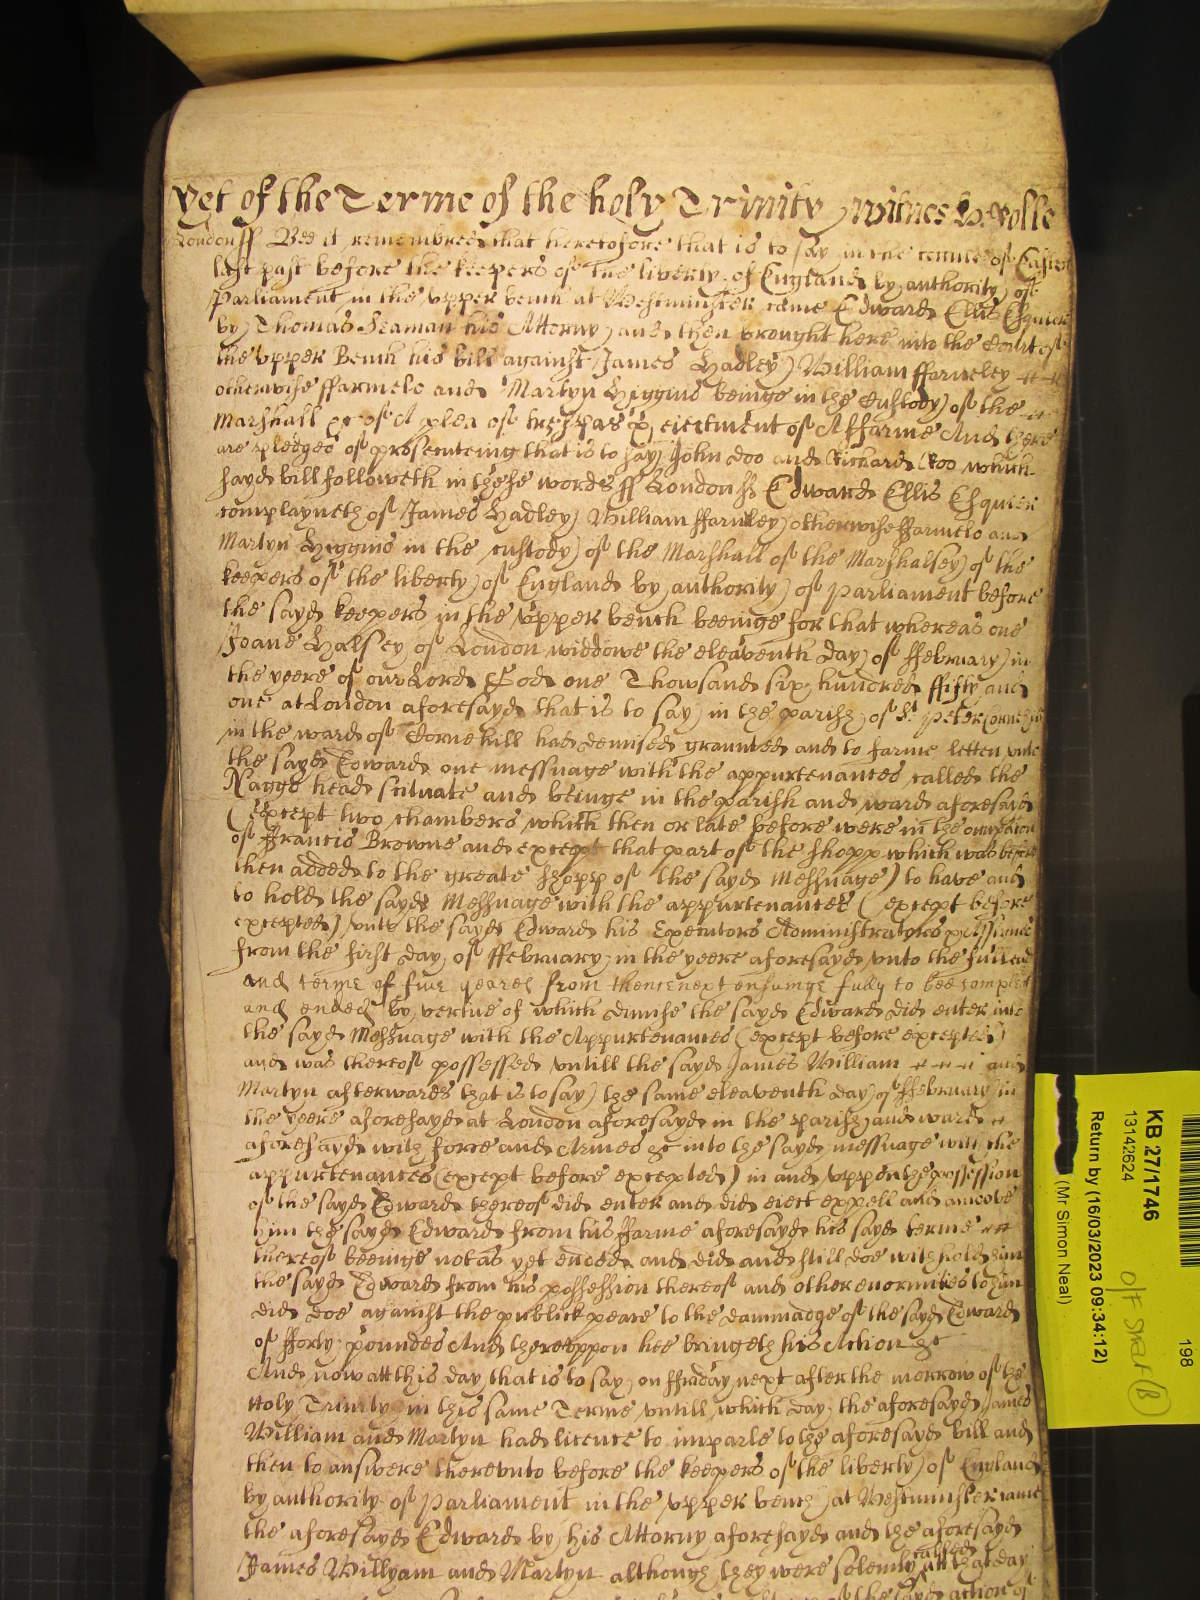 Yet of the Terme of the holy Trinity witnes H Rolle
London ss Bee it remembred that heretofore that is to say in the terme of Easter
last past before the keepers of the liberty of England by authority of
Parliament in the vpper bench at Westminster came Edward Ellis Esquier
by Thomas Seaman his Attorny and then brought here into the Court of
the vpper Bench his bill against James Hadley William ffarneley
otherwise ffarmelo and Martyn Higgins beinge in the Custody of the
Marshall &c of A plea of trespas & eiectment of A ffarme And there
are pledges of prosecuteing that is to say John doo and Richard Roo which
sayd bill followeth in these words ss London ss Edward Ellis Esquier
complayneth of James Hadley William ffarnlley otherwise ffarmelo and
Martyn Higgins in the custody of the Marshall of the Marshalsey of the
keepers of the liberty of England by authority of Parliament before
the sayd keepers in the vpper bench beeinge for that whereas one
Joane Halsey of London widdowe the eleaventh day of ffebruary in
the yeere of our Lord God one Thowsand six hundred ffifty and
one at London aforesayd that is to say in the parish of St Peter Cornehill
in the ward of Cornehill had demised graunted and to farme letten vnto
the sayd Edward one messuage with the appurtenances called the
Naggs head scituate and beinge in the parish and ward aforesayd
(except two chambers which then or late before were in the occupacon
of ffrancis Browne and except that part of the shopp which was before
then added to the greate shopp of the sayd Messuage) to have and
to hold the sayd Messuage with the appurtenances (except before
excepted) vnto the sayd Edward his Executors Administrators & Assignes
from the first day of ffebruary in the yeere aforesayd vnto the full end
and terme of five yeares from thence next ensuinge fully to bee compleat
and ended by vertue of which dimise the sayd Edward did enter into
the sayd Messuage with the Appurtenances (except before excepted)
and was thereof possessed vntill the sayd James William and
Martyn afterwards that is to say the same eleaventh day of ffebruary in
the yeere aforesayd at London aforesayd in the parish and ward
aforesayd with force and Armes &c into the sayd messuage with the
appurtenances (except before excepted) in and vppon the possession
of the sayd Edward thereof did enter and did eiect expell and amove
him the sayd Edward from his ffarme aforesayd his sayd terme
thereof beeinge not as yet ended and did and still doe withhold him
the sayd Edward from his possession thereof and other enormities to him
did doe against the publick peace to the dammadge of the sayd Edward
of fforty poundes And therevppon hee bringeth his Action &c
And now att this day that is to say on ffriday next after the morrow of the
Holy Trinity in this same Terme vntill which day the aforesayd James
William and Martyn had licence to imparle to the aforesayd bill and
then to answere therevnto before the keepers of the liberty of England
by authority of Parliament in the vpper bench at Westminster came
the aforesayd Edward by his Attorny aforesayd and the aforesayd
James Willyam and Martyn although they were solemly called att that day
of the sayd action of
KB 27/1746
13142624
Return by (16/03/2023 09:34:12)
(Mr Simon Neal)
198